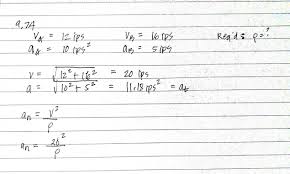 9.74
Vx = 12 ips Vy = 16 ips Req'd: ρ = ?
ax = 10 ips² ay = 5 ips
v = √12² + 16² = 20 ips
a = √10² + 5² = 11.18 ips² = at
an = v² / ρ
an = 20² / ρ